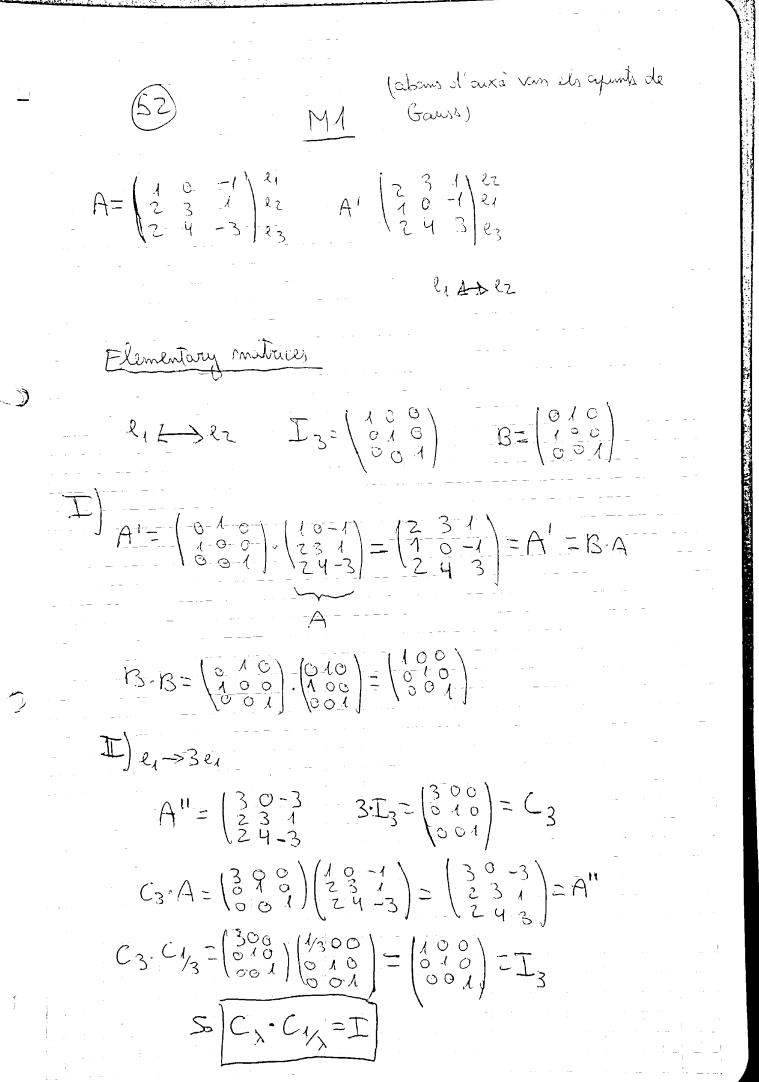 (abans d'això van els apunts de
Gauss)
52
M1
A = (1 0 -1; 2 3 1; 2 4 -3) e1 e2 e3    A' (2 3 1; 1 0 -1; 2 4 3) e2 e1 e3
e1 ↔ e2
Elementary matrices
e1 ↔ e2    I3 = (1 0 0; 0 1 0; 0 0 1)    B = (0 1 0; 1 0 0; 0 0 1)
I) A' = (0 1 0; 1 0 0; 0 0 1) · (1 0 -1; 2 3 1; 2 4 -3) = (2 3 1; 1 0 -1; 2 4 3) = A' = B·A
A
B·B = (0 1 0; 1 0 0; 0 0 1) · (0 1 0; 1 0 0; 0 0 1) = (1 0 0; 0 1 0; 0 0 1)
II) e1 → 3e1
A'' = (3 0 -3; 2 3 1; 2 4 -3    3·I3 = (3 0 0; 0 1 0; 0 0 1) = C3
C3·A = (3 0 0; 0 1 0; 0 0 1) (1 0 -1; 2 3 1; 2 4 -3) = (3 0 -3; 2 3 1; 2 4 3) = A''
C3·C1/3 = (3 0 0; 0 1 0; 0 0 1) (1/3 0 0; 0 1 0; 0 0 1) = (1 0 0; 0 1 0; 0 0 1) = I3
So Cλ · C1/λ = I